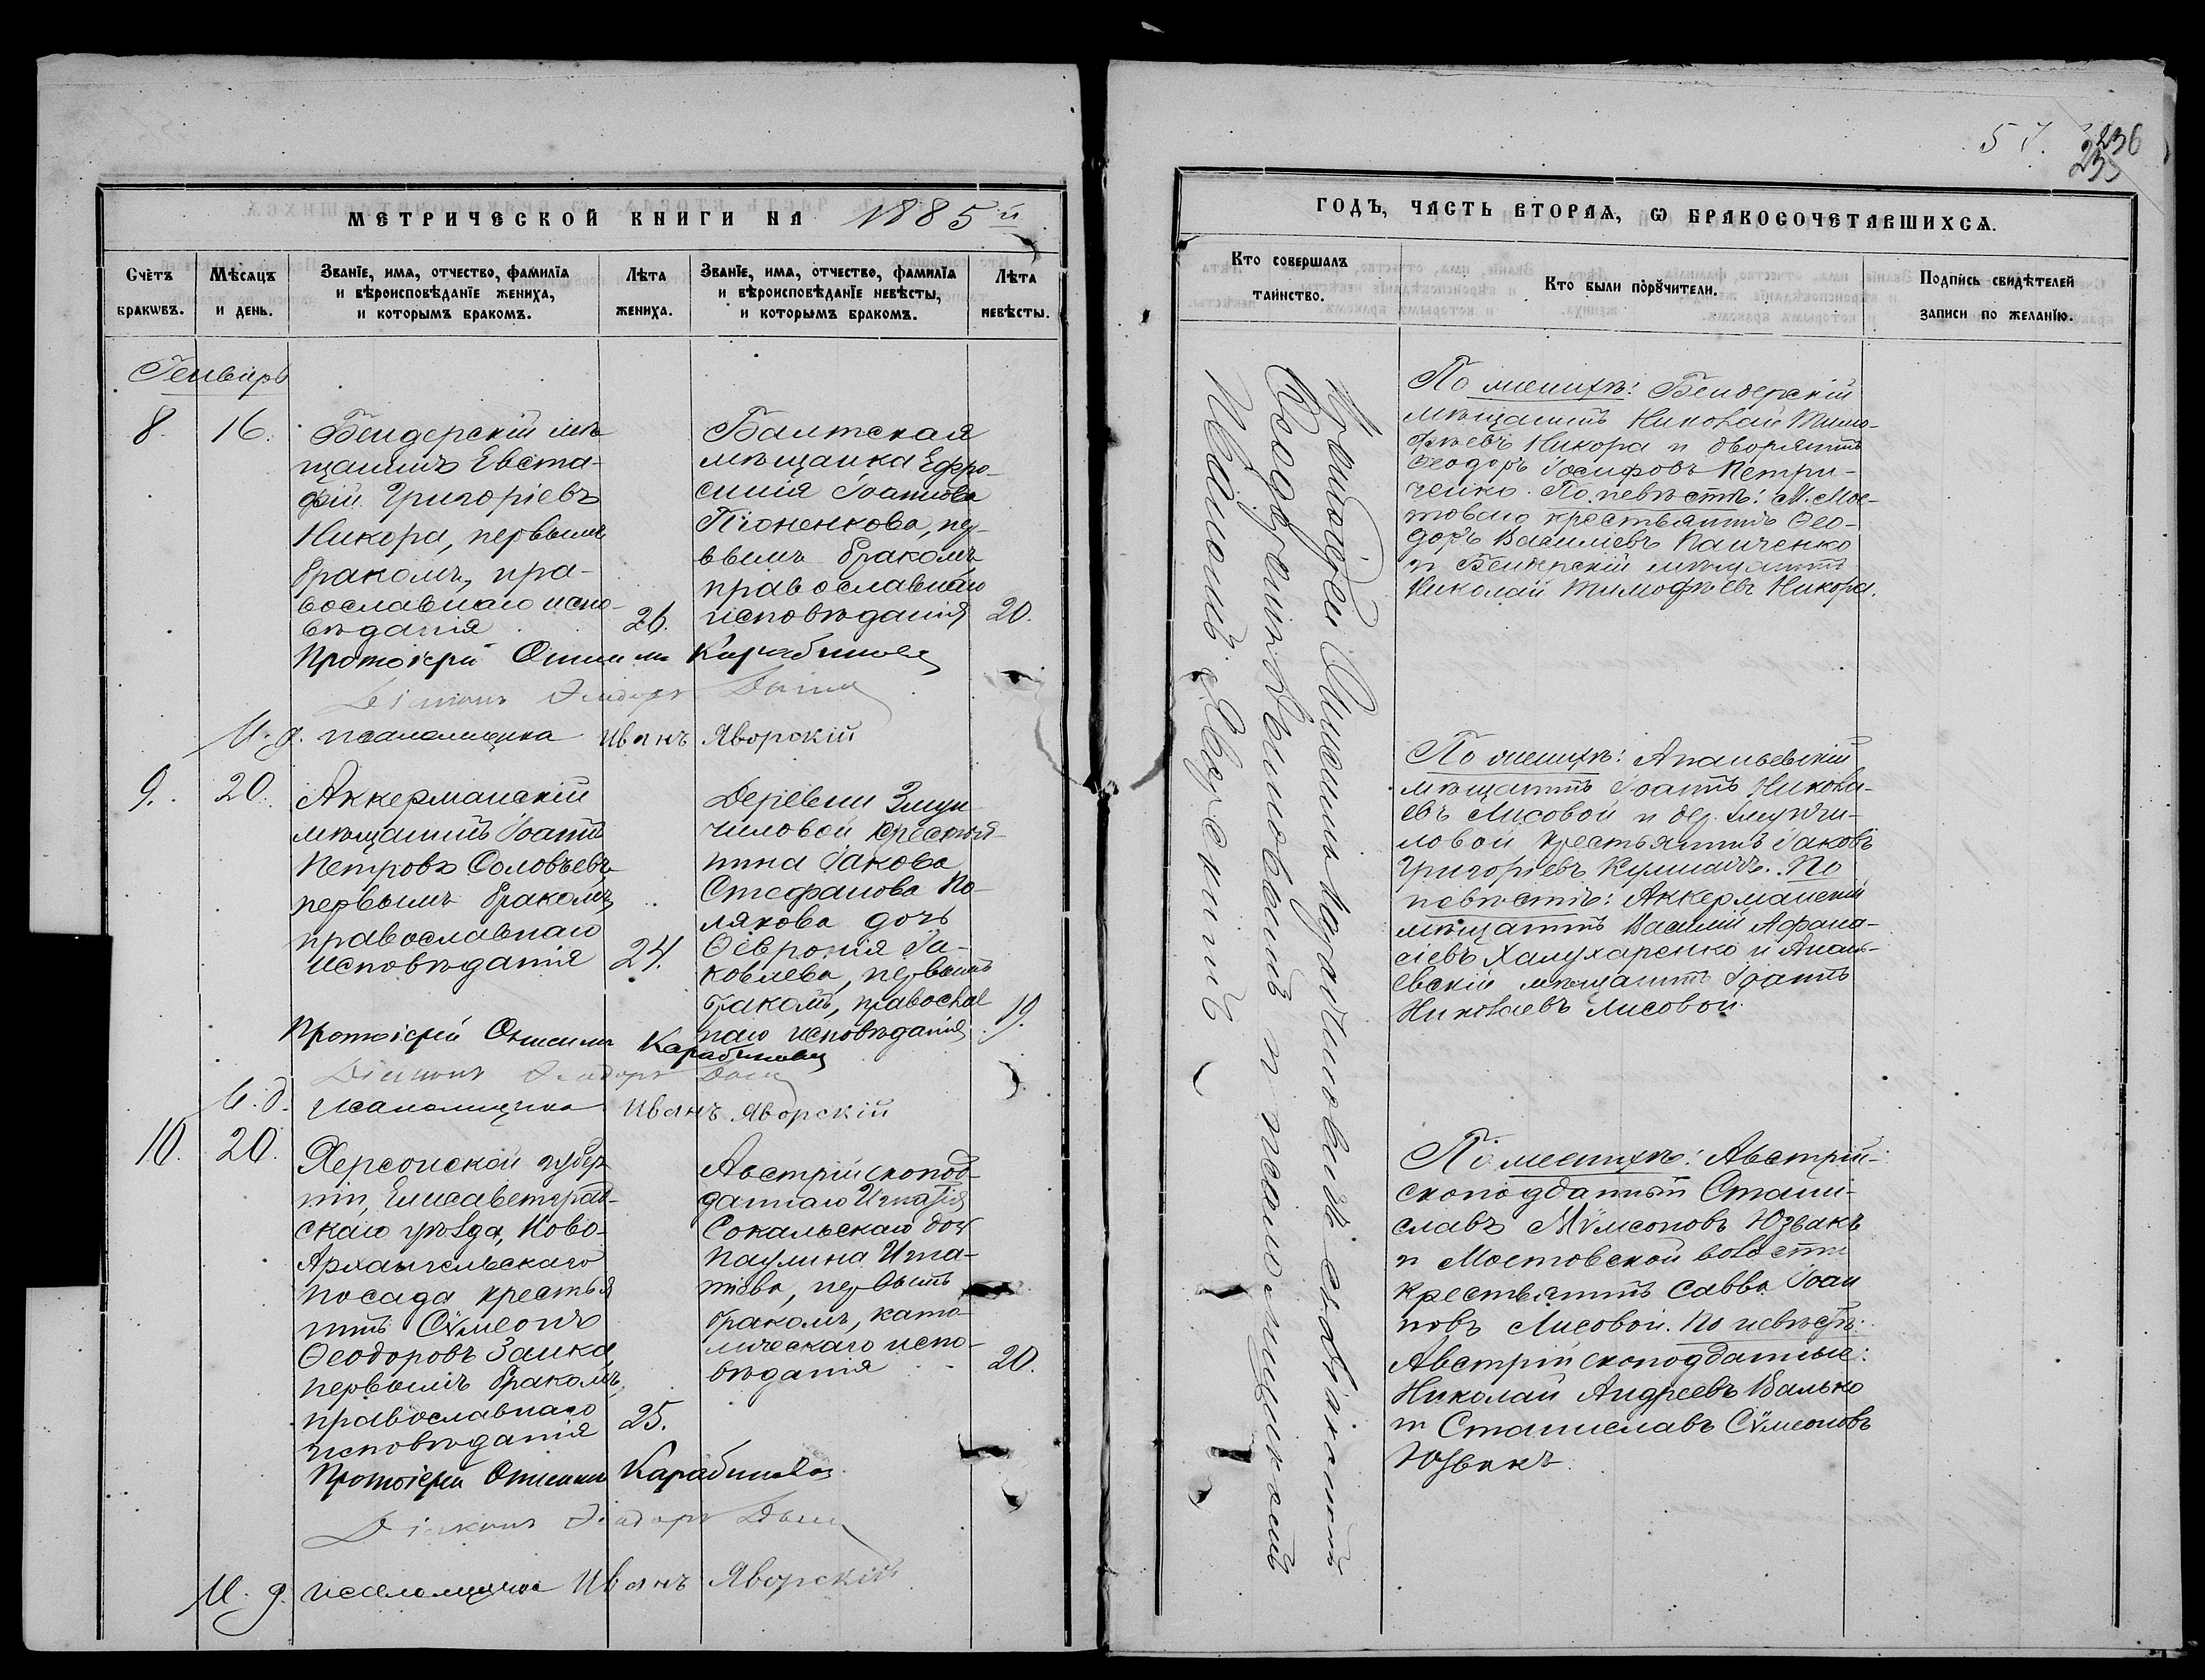 МЕТРИЧЕСКОЙ КНИГИ НА 1885й
Счетъ браковъ.
Мѣсяцъ и день.
Званіе, имя, отчество, фамилія
и вѣроисповѣданіе жениха,
и которымъ бракомъ.
Лѣта жениха.
Званіе, имя, отчество, фамилія
и вѣроисповѣданіе невѣсты,
и которымъ бракомъ.
Лѣта невѣсты.
Генварь
8.
16.
Бендерскій мѣ-
щанинъ Евста-
фій Григоріевъ
Никора, первымъ
бракомъ, пра-
вославнаго испо-
вѣданія
26.
Балтская
мѣщанка Ефро-
синія Іоаннова
пер-
вымъ бракомъ
православнаго
исповѣданія
20.
Протоіерей Онисимъ Карабиновъ
Діаконъ Ѳеодоръ
И. д. псаломщика Иванъ Яворскій
9.
20.
Аккерманскій
мѣщанинъ Іоаннъ
Петровъ Соловьевъ
первымъ бракомъ,
православнаго
исповѣданія
24.
Деревни
крестья-
нина Іакова
Стефанова По-
лякова дочь
Ѳеvронія Іа-
ковлева, первымъ
бракомъ, православ
наго исповѣданія
19.
Протоіерей Онисимъ Карабиновъ
Діаконъ Ѳеодоръ
И. д. псаломщика Иванъ Яворскій
10.
20.
Херсонской губер
ніи, Елисаветград-
скаго уѣзда, Ново-
Архангельскаго
посада крестья
нинъ Сvмеонъ
Ѳеодоровъ Заика,
первымъ бракомъ,
православнаго
исповѣданія
25.
Австрійскопод-
даннаго Игнатія
Сокальскаго дочь
Паулина Игна-
тіева, первымъ
бракомъ, като-
лическаго испо-
вѣданія
20.
Протоіерей Онисимъ Карабиновъ
Діаконъ Ѳеодоръ
И. д. псаломщика Иванъ Яворскій
57.
236
235
ГОДЪ, ЧАСТЬ ВТОРАЯ, Ѡ БРАКОСОЧЕТАВШИХСЯ.
Кто совершалъ таинство.
Кто были поручители.
Подпись свидѣтелей
записи по желанію.
Протоіерей Онисимъ Карабиновъ съ діакономъ
Ѳеодоромъ и псаломщикомъ
Иваномъ Яворскимъ
По женихѣ: Бендерскій
мѣщанинъ Николай Тимо-
фѣевъ Никора и дворянинъ
Ѳеодоръ Іосифовъ Петри-
ченко. По невѣстѣ: М. Мос-
товаго крестьянинъ Ѳео-
доръ Василіевъ Панченко
и Бендерскій мѣщанинъ
Николай Тимофѣевъ Никора.
По женихѣ: Ананьевскій
мѣщанинъ Іоаннъ Никола-
евъ Лисовой и дер.
крестьянинъ Іаковъ
Григоріевъ По
невѣстѣ: Аккерманскій
мѣщанинъ Василій Афана-
сіевъ Халухаренко и Анань-
евскій мѣщанинъ Іоаннъ
Николаевъ Лисовой.
По женихѣ: Австрій-
скоподданный Стани-
славъ Сvмеоновъ Юзвакъ
и Мостовской волости
крестьянинъ Савва Іоан
новъ Лисовой. По невѣстѣ:
Австрійскоподданные:
Николай Андреевъ Валько
и Станиславъ Сvмеоновъ
Юзвакъ.